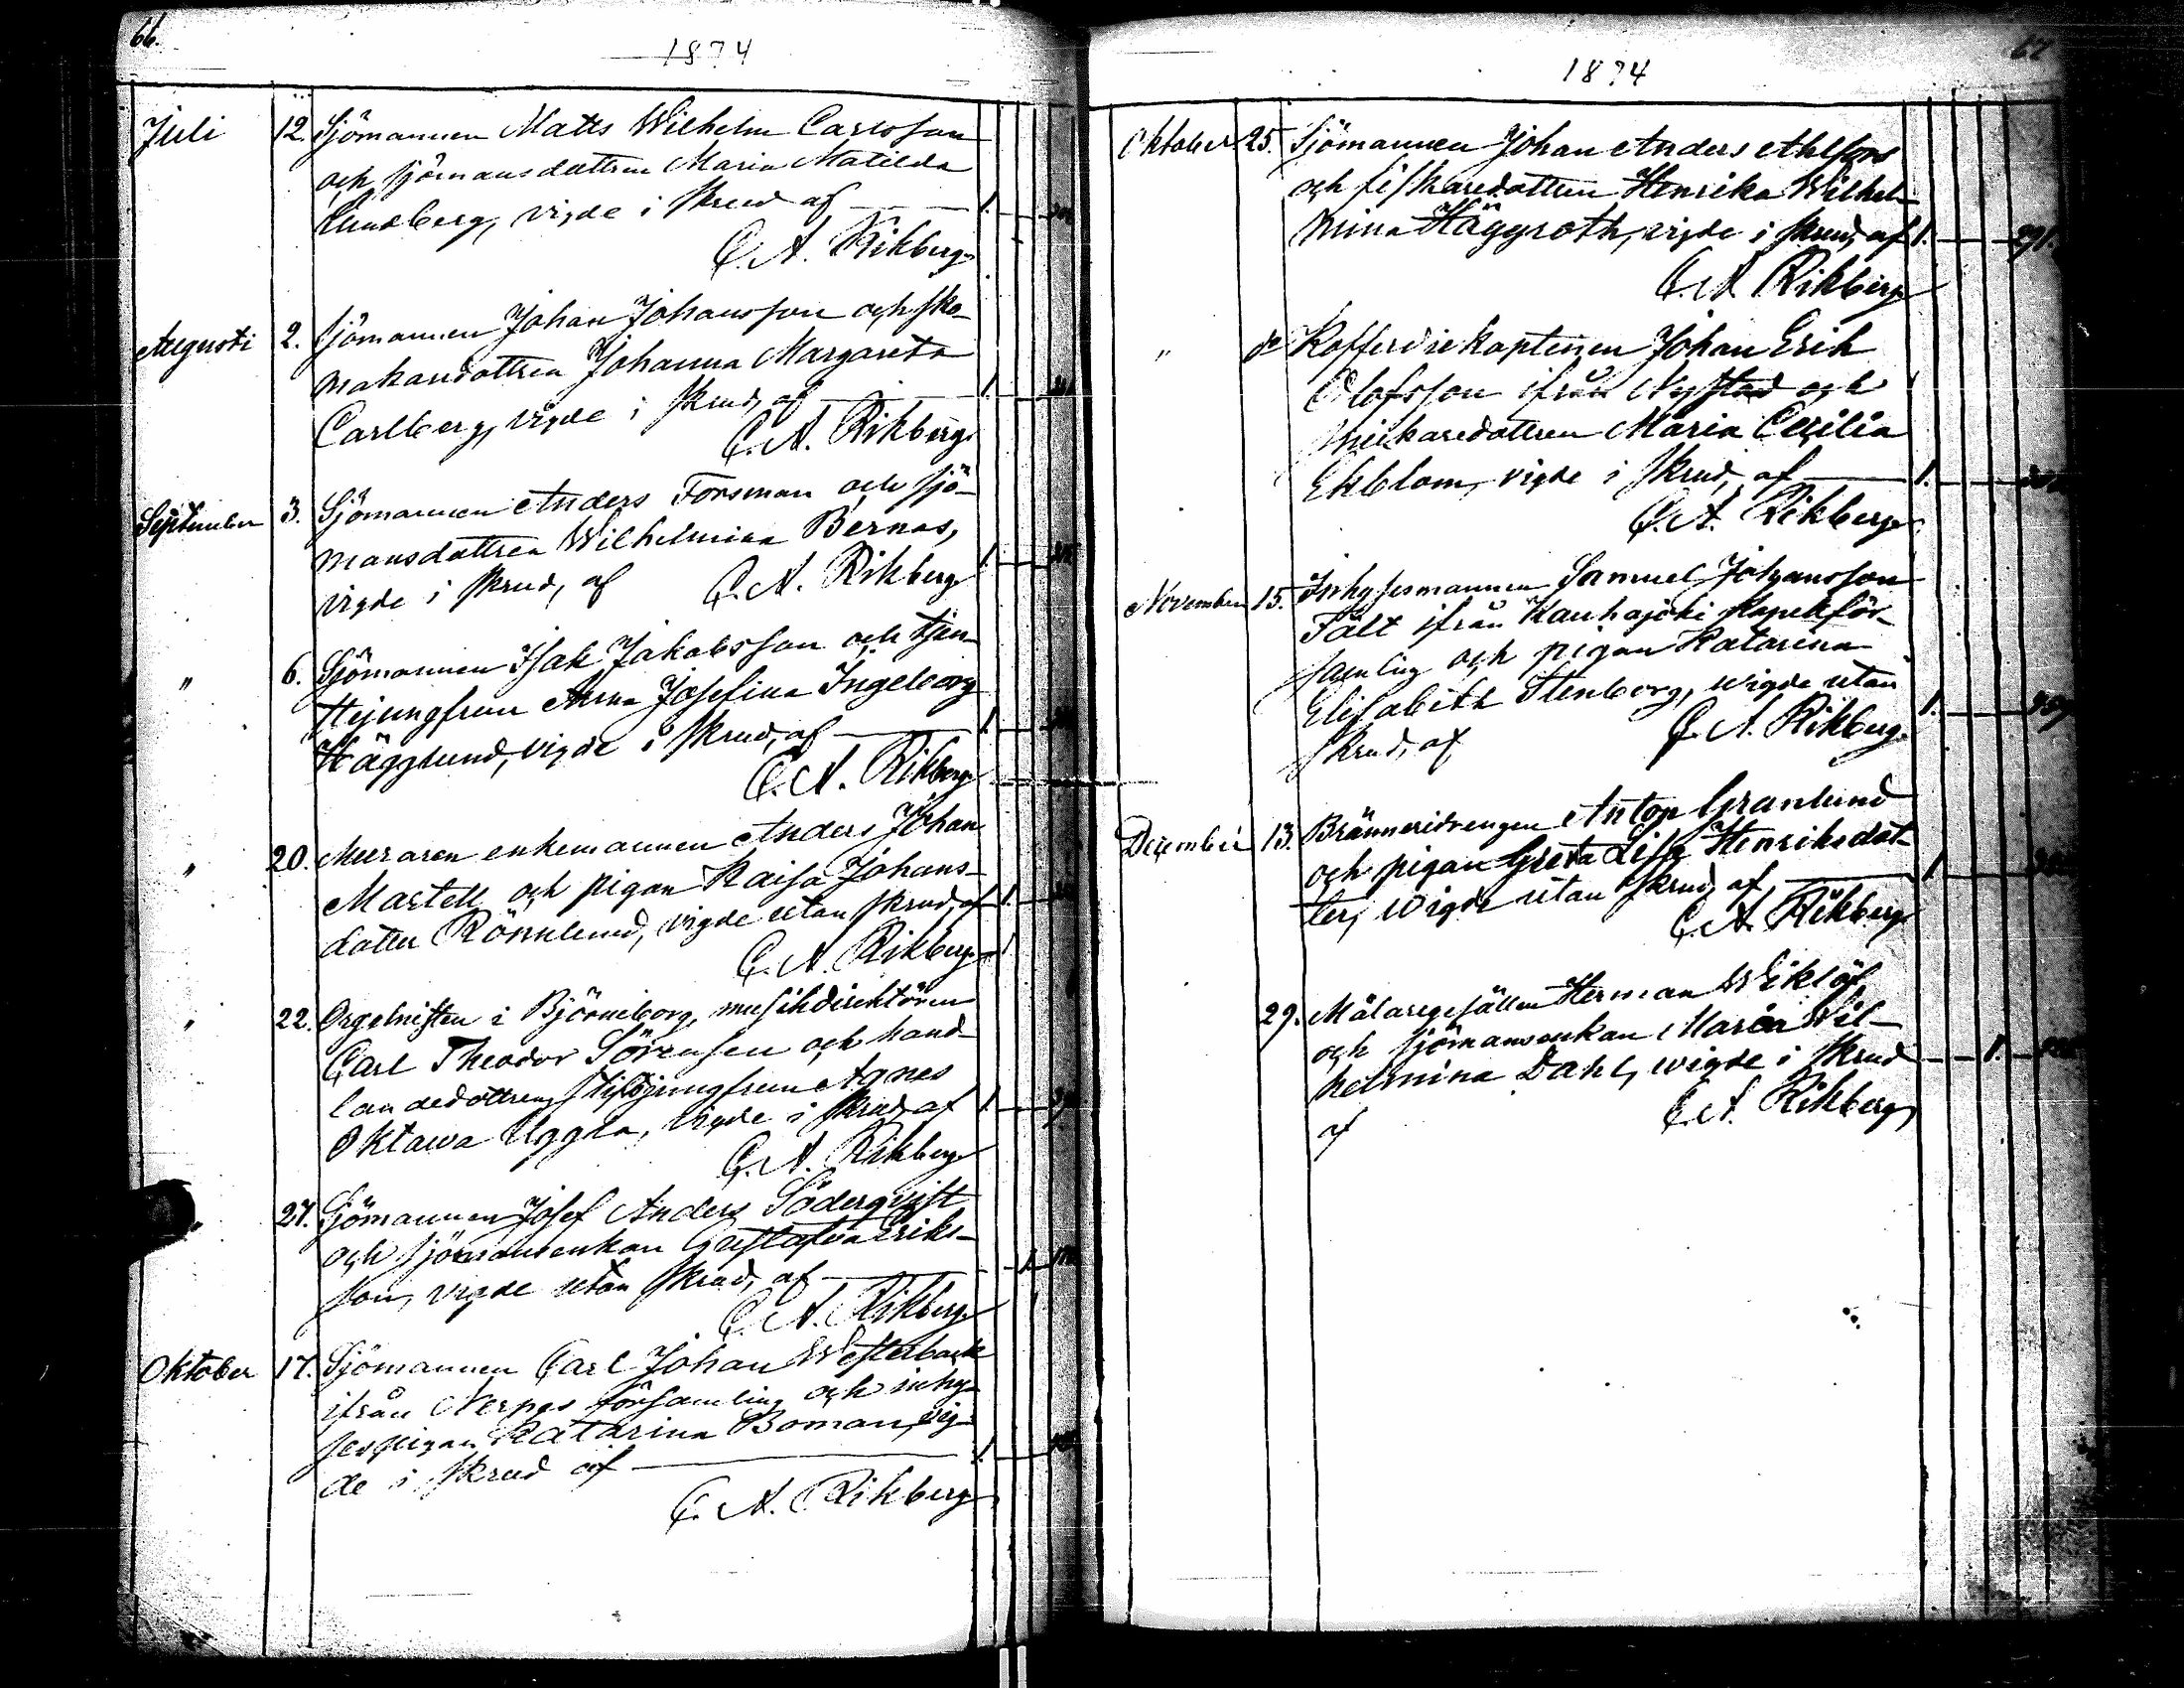 66.
1874
Juli 12. Sjömannen Matts Wilhelm Carlsson
och sjömansdottren Maria Matilda
Lundberg, vigde i skrud af 1.
C. A. Rikberg
Augusti 2. Sjömannen Johan Johansson och sko-
makaredottren Johanna Margareta
Carlberg, vigde i skrud, af 1.
C. A. Rikberg
September 3. Sjömannen Anders Forsman och sjö-
mansdottren Wilhelmina Bernas, 1.
vigde i skrud, af C. A. Rikberg
" 6. Sjömannen Isak Jakobsson och tjen-
stejungfrun Anna Josefina Ingeborg
Hägglund, vigde i skrud, af 1.
C. A. Rikberg
" 20. Muraren enkemannen Anders Johan
Martell och pigan Kaisa Johans-
dotter Rönnlund, vigde utan skrud, af 1.
C. A. Rikberg
" 22. Orgelnisten i Björneborg, musikdirektören
Carl Theodor Sörensen och hand-
landedottren, jungfrun Agnes
Oktawa Uggla, vigde i skrud, af 1.
C. A. Rikberg
" 27. Sjömannen Josef Anders Söderqvist
och sjömansenkan Gustafva Eriks-
son, vigde utan skrud, af 1.
C. A. Rikberg
Oktober 17. Sjömannen Carl Johan Westerback
ifrån Nerpes församling och inhy-
sespigan Katarina Boman, vig-
de i skrud af 1.
C. A. Rikberg
67
1874
Oktober 25. Sjömannen Johan Anders Ahlfors
och fiskaredottren Henrika Wilhel-
mina Häggroth, vigde i skrud, af 1.
C. A. Rikberg
" d:o Kofferdiekaptenen Johan Erik
Olofsson ifrån Nystad och
snickaredottren Maria Cecilia
Ekblom, vigde i skrud, af 1.
C. A. Rikberg
November 15. Inhysesmannen Samuel Johansson
Fält ifrån Kauhajoki kapellför-
samling och pigan Katarina
Elisabeth Stenborg, wigde utan 1.
skrud, af C. A. Rikberg
December 13. Bränneridrengen Anton Granlund
och pigan Greta Lisa Henriksdot-
ter, wigde utan skrud, af 1.
C. A. Rikberg
29. Målaregesällen Herman Wiklöf
och sjömansenkan Maria Wil-
helmina Dahl, wigde i skrud 1.
af C. A. Rikberg